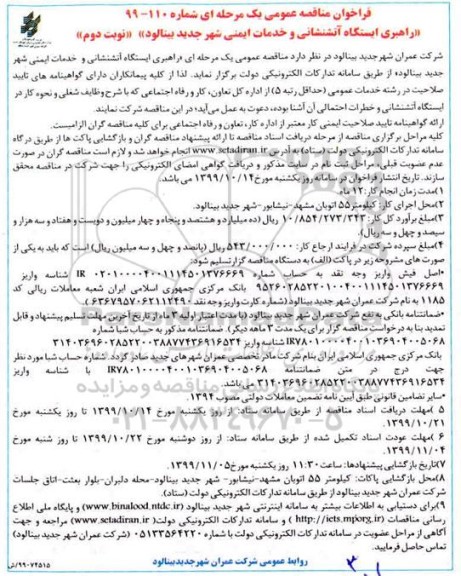 فراخوان مناقصه عمومی یک مرحله ای شماره ۱۱۰-۹۹
«راهبری ایستگاه آتشنشانی و خدمات ایمنی شهر جدید بینالود» «نوبت دوم»
شرکت عمران شهر جدید بینالود در نظر دارد مناقصه عمومی یک مرحله ای «راهبری ایستگاه آتشنشانی و خدمات ایمنی شهر
جدید بینالود» از طریق سامانه تدارکات الکترونیکی دولت برگزار نماید. لذا از کلیه پیمانکاران دارای گواهینامه های تایید
صلاحیت در رشته خدمات عمومی (حداقل رتبه ۵) از اداره کل تعاون، کار و رفاه اجتماعی که با شرح وظایف شغلی و نحوه کار در
ایستگاه آتشنشانی و خطرات احتمالی آن آشنا بوده، دعوت به عمل می‌آید؛ در این مناقصه شرکت نمایند.
ارائه گواهینامه تایید صلاحیت ایمنی کار معتبر از اداره کار، تعاون و رفاه اجتماعی برای کلیه مناقصه گران الزامیست.
کلیه مراحل برگزاری مناقصه از مرحله دریافت اسناد مناقصه تا ارائه پیشنهاد مناقصه گران و بازگشایی پاکت ها از طریق درگاه
سامانه تدارکات الکترونیکی دولت (ستاد) به آدرس www.setadiran.ir انجام خواهد شد و لازم است مناقصه گران در صورت
عدم عضویت قبلی، مراحل ثبت نام در سایت مذکور و دریافت گواهی امضای الکترونیکی را جهت شرکت در مناقصه محقق
سازند. تاریخ انتشار فراخوان در سامانه روز یکشنبه مورخ ۱۳۹۹/۱۰/۱۴ می باشد.
۱)مدت زمان انجام کار: ۱۲ ماه.
۲)محل اجرای کار: کیلومتر۵۵ اتوبان مشهد-نیشابور-شهر جدید بینالود.
۳)مبلغ برآورد کل کار: ۱۰/۸۵۴/۲۷۳/۳۴۳ ریال (ده میلیارد و هشتصد و پنجاه و چهار میلیون و دویست و هفتاد و سه هزار و
سیصد و چهل و سه ریال).
۴)مبلغ سپرده شرکت در فرایند ارجاع کار: ۵۴۳/۰۰۰/۰۰۰ ریال (پانصد و چهل و سه میلیون ریال) است که باید به یکی از
صورت های مشروحه زیر در پاکت (الف) به دستگاه مناقصه گزار تسلیم شود:
*اصل فیش واریز وجه نقد به حساب شماره IR شناسه واریز
بانک مرکزی جمهوری اسلامی ایران شعبه معاملات ریالی کد
۱۱۸۵ به نام شرکت عمران شهر جدید بینالود (شماره کارت واریز وجه نقد ۶۳۶۷۹۵۷۰۶۲۱۱۲۴۹۰)
*ضمانتنامه بانکی به نفع شرکت عمران شهر جدید بینالود (با مدت اعتبار اولیه ۳ ماه از تاریخ آخرین مهلت تسلیم پیشنهاد و قابل
تمدید بنا به درخواست مناقصه گزار برای یک مدت ۳ ماهه دیگر). ضمانتنامه مذکور به حساب شبا شماره
شناسه واریز
بانک مرکزی جمهوری اسلامی ایران بنام شرکت مادر تخصصی عمران شهرهای جدید صادر گردد. شماره حساب شبا مورد نظر
جهت درج در متن ضمانتنامه با شناسه واریز
می‌باشد.
*سایر تضامین قانونی طبق آیین نامه تضمین معاملات دولتی مصوب ۱۳۹۴.
۵ )مهلت دریافت اسناد مناقصه از طریق سامانه ستاد: از روز یکشنبه مورخ ۱۳۹۹/۱۰/۱۴ تا روز یکشنبه مورخ
۱۳۹۹/۱۰/۲۱.
۶ )مهلت عودت اسناد تکمیل شده از طریق سامانه ستاد: از روز دوشنبه مورخ ۱۳۹۹/۱۰/۲۲ تا روز شنبه مورخ
۱۳۹۹/۱۱/۰۴.
۷)تاریخ بازگشایی پیشنهادها: ساعت ۱۱:۳۰ روز یکشنبه مورخ ۱۳۹۹/۱۱/۰۵.
۸)محل بازگشایی پاکات: کیلومتر ۵۵ اتوبان مشهد-نیشابور- شهر جدید بینالود-محله دلبران-بلوار بعثت-اتاق جلسات
شرکت عمران شهر جدید بینالود از طریق سامانه تدارکات الکترونیکی دولت (ستاد).
۹)برای دستیابی به اطلاعات بیشتر به سامانه اینترنتی شهر جدید بینالود (www.binalood.ntdc.ir) و پایگاه ملی اطلاع
رسانی مناقصات (http://iets.mporg.ir) و سامانه تدارکات الکترونیکی دولت( www.setadiran.ir) مراجعه و جهت
آگاهی از مراحل عضویت در سامانه تدارکات الکترونیکی دولت با شماره (۰۵۱۳۳۵۶۴۲۲۰ شرکت عمران شهر جدید بینالود)
تماس حاصل فرمایید.
روابط عمومی شرکت عمران شهر جدید بینالود
۹۹۰۷۴۵۱۵/ش
۰۲۱-۸۸۳۴۹۶۷۰-۵